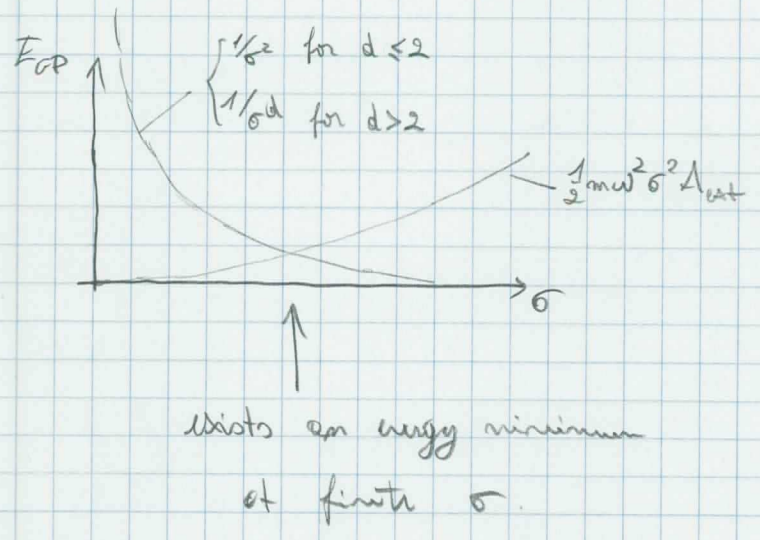 E_GP
1/σ² for d ≤ 2
1/σ^d for d > 2
½ mω²σ² Λ_ext
σ
exists an energy minimum
at finite σ.